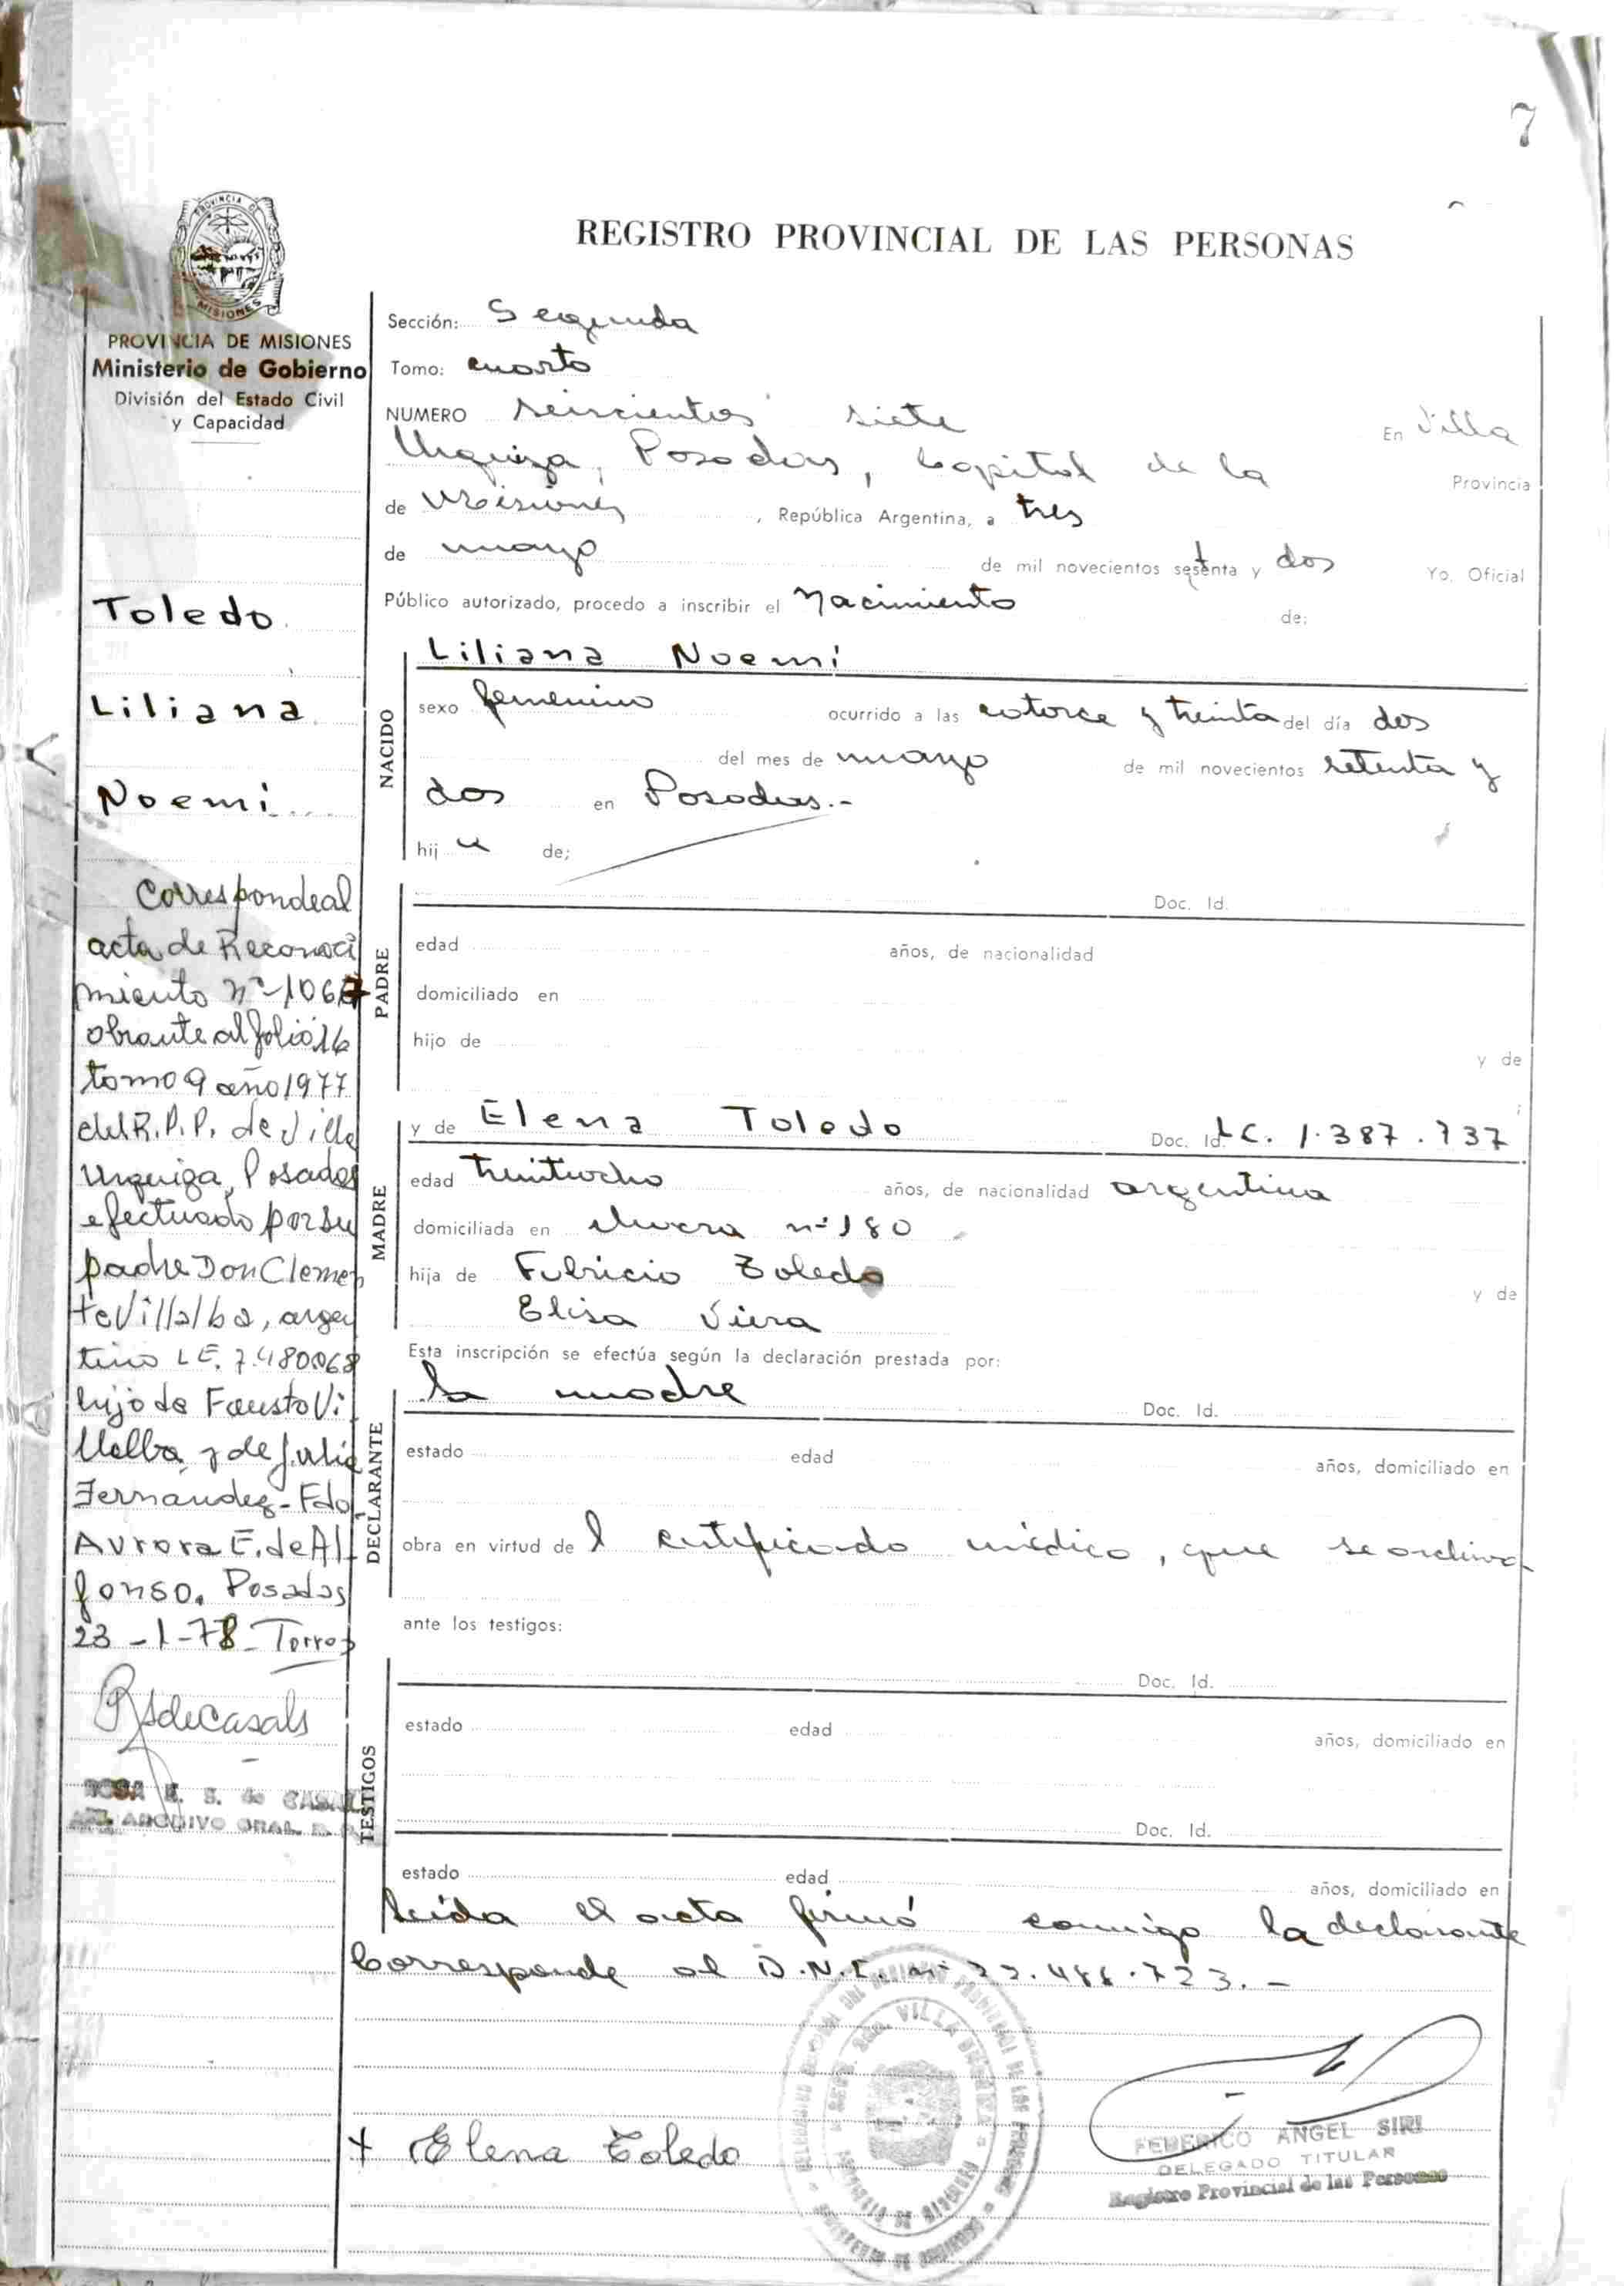 7
PROVINCIA DE
MISIONES
REGISTRO PROVINCIAL DE LAS PERSONAS
PROVINCIA DE MISIONES
Ministerio de Gobierno
División del Estado Civil
y Capacidad
Toledo
Liliana
Noemí
Corresponde al
acta de Reconoci
miento Nº 106
obrante al folio 16
tomo 9 año 1977
del R.P.P. de Villa
Urquiza, Posadas
efectuado por su
padre Don Clemen
te Villalba, argen
tino L.E. 7.480068
hijo de Fausto Vi
llalba y de Julia
Fernandez - Fdo
Aurora E. de Al
fonso. Posadas
23-1-78 - Torres
RSdeCasals
ROSA E. S. de CASALS
ARCHIVO GRAL.
Sección: Segunda
Tomo: cuarto
NUMERO seiscientos siete En Villa
Urquiza, Posadas, Capital de la Provincia
de Misiones, República Argentina, a tres
de mayo de mil novecientos setenta y dos Yo. Oficial
Público autorizado, procedo a inscribir el Nacimiento de:
NACIDO
Liliana Noemí
sexo femenino ocurrido a las catorce y treinta del día dos
del mes de mayo de mil novecientos setenta y
dos en Posadas.-
hij a de;
PADRE
Doc. Id.
edad años, de nacionalidad
domiciliado en
hijo de y de
MADRE
y de Elena Toledo Doc. Id. L.C. 1.387.737
edad treintiocho años, de nacionalidad argentina
domiciliada en nº 180
hija de Fabricio Toledo y de
Elisa Viera
Esta inscripción se efectúa según la declaración prestada por:
DECLARANTE
la madre Doc. Id.
estado edad años, domiciliado en
obra en virtud de l certificado médico, que se archiva
ante los testigos:
TESTIGOS
Doc. Id.
estado edad años, domiciliado en
Doc. Id.
estado edad años, domiciliado en
leída el acta firmó conmigo la declarante
Corresponde al D.N.I. nº 22.488.723.-
+ Elena Toledo
VILLA URQUIZA
FEDERICO ANGEL SIRI
DELEGADO TITULAR
Registro Provincial de las Personas